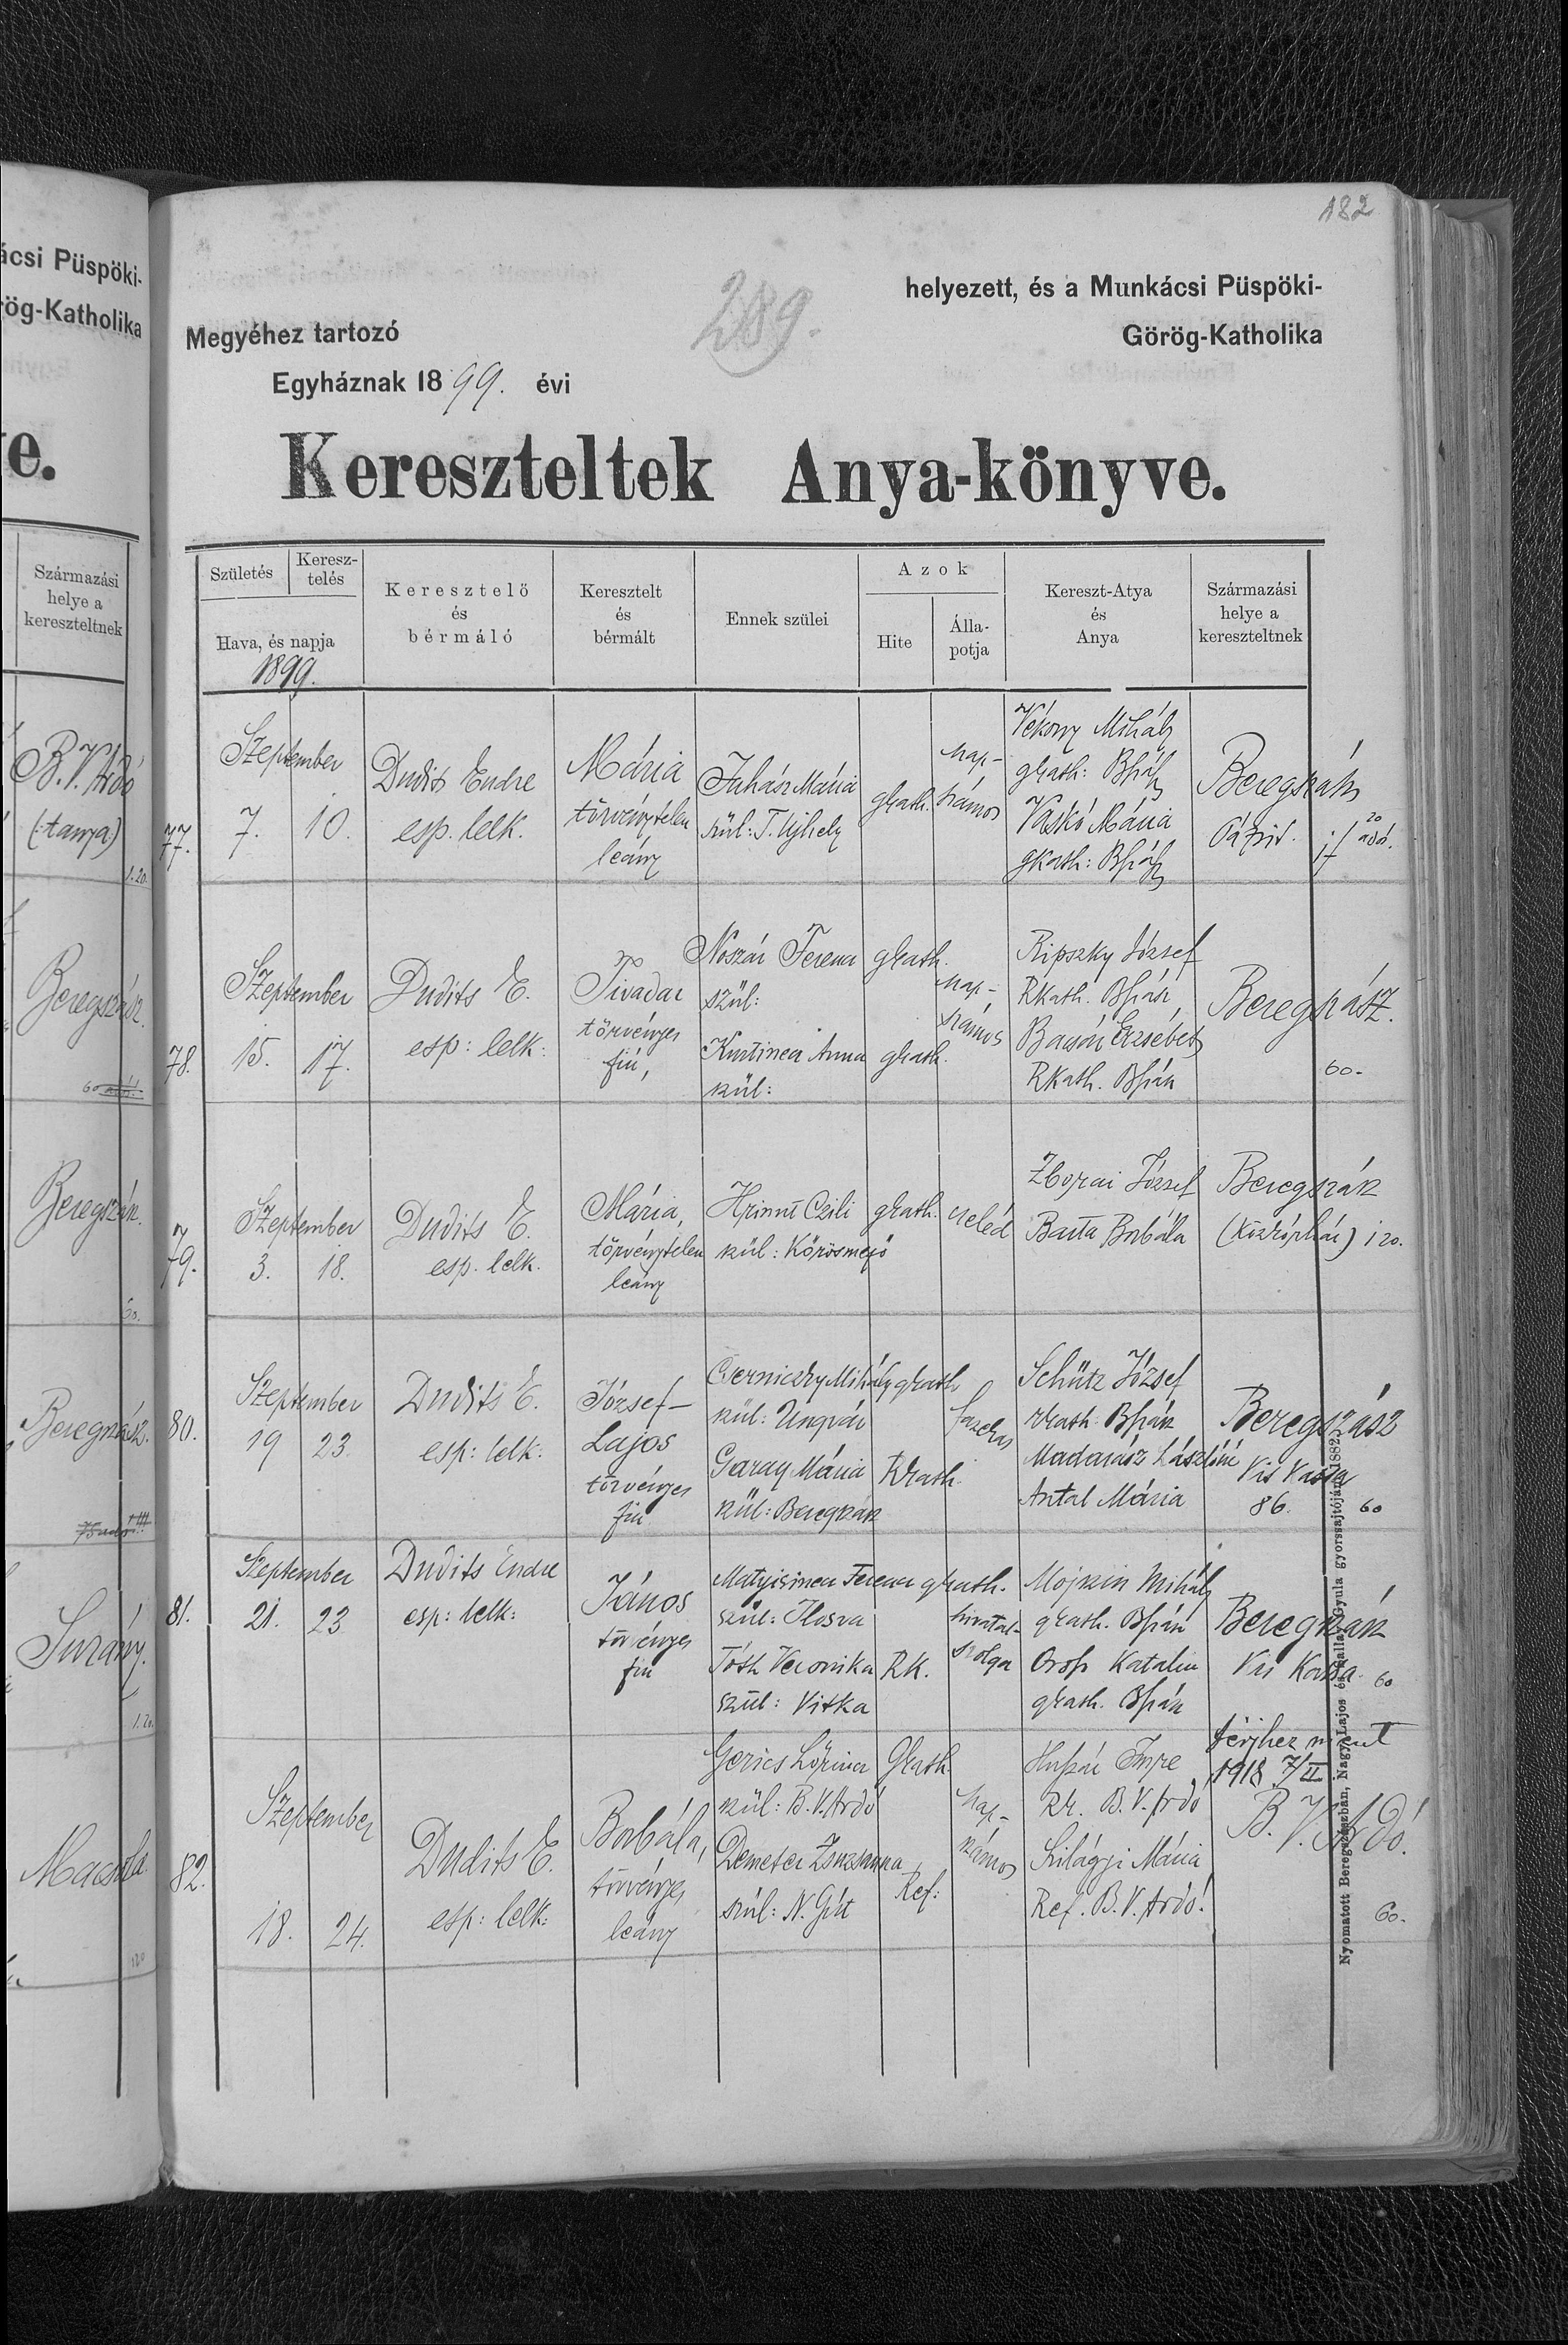 ácsi Püspöki-
rög-Katholika
e.
Származási
helye a
kereszteltnek
B. V. Ardó
(: tanya)
1.20.
Beregszász.
60
Beregszász.
60.
Beregszász.
Surány.
1.20.
Macsola
120
182
289.
helyezett, és a Munkácsi Püspöki-
Megyéhez tartozó
Görög-Katholika
Egyháznak 1899. évi
Kereszteltek Anya-könyve.
Születés
Keresz-
telés
Hava, és napja
1899.
Keresztelő
és
bérmáló
Keresztelt
és
bérmált
Ennek szülei
Azok
Hite
Álla-
potja
Kereszt-Atya
és
Anya
Származási
helye a
kereszteltnek
77.
Szeptember
7. 10.
Dudits Endre
esp. lelk.
Mária
törvénytelen
leány
Juhász Mária
szül: T. Ujhely
gkath.
nap-
számos
Vékony Mihály
gkath: Bszász
Vaskó Mária
gkath: Bszász
Beregszász
78.
Szeptember
15. 17.
Dudits E.
esp: lelk:
Tivadar
törvényes
fiú,
Noszár Ferencz
szül:
Kurtinecz Anna
szül:
gkath.
gkath.
nap-
számos
Ripszky József
Rkath. Bszász,
Erzsébet
RKath. Bszász
Beregszász.
60.
79.
Szeptember
3. 18.
Dudits E.
esp. lelk.
Mária,
törvénytelen
leány
Czili
szül: Kőrösmező
gkath.
cseléd
József
Barta Borbála
Beregszász
(közkórház) 1 20.
80.
Szeptember
19 23.
Dudits E.
esp: lelk:
József-
Lajos
törvényes
fiú
Cserniczky Mihály gkath
szül: Ungvár
Garay Mária Rkath.
szül: Beregszász
fazekas
Schütz József
rkath: Bszász
Madarász Lászlóné
Antal Mária
Beregszász
Kis Kassa
86. 60
81.
Szeptember
21. 23
Dudits Endre
esp: lelk:
János
törvényes
fiú
Matyisinecz Ferencz gkath.
szül: Ilosva
Tóth Veronika RK.
szül: Vitka
hivatal-
szolga
Mojszin Mihály
gkath. Bszász
Orosz Katalin
gkath. Bszász
Beregszász
Kis Kassa. 60
82.
Szeptember
18. 24.
Dudits E.
esp: lelk:
Borbála,
törvényes
leány
Gerics Lőrincz Gkath
szül: B. V. Ardó
Demeter Zsuzsanna
szül: N. Gút
Ref:
nap-
számos
Huszár Imre
Rk. B. V. Ardó
Szilágyi Mária
Ref. B. V. Ardó.
férjhez ment
1918 7/II
B. V. Ardó.
60.
Nyomatott Beregszászban, Nagy Lajos és Halla Gyula gyorssajtóján 1882.